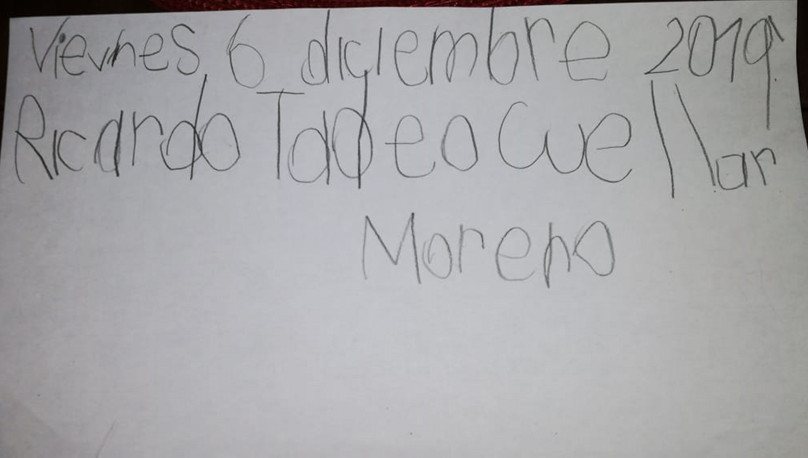 Viernes, 6 diciembre 2019
Ricardo Tadeo Cuellar
Moreno